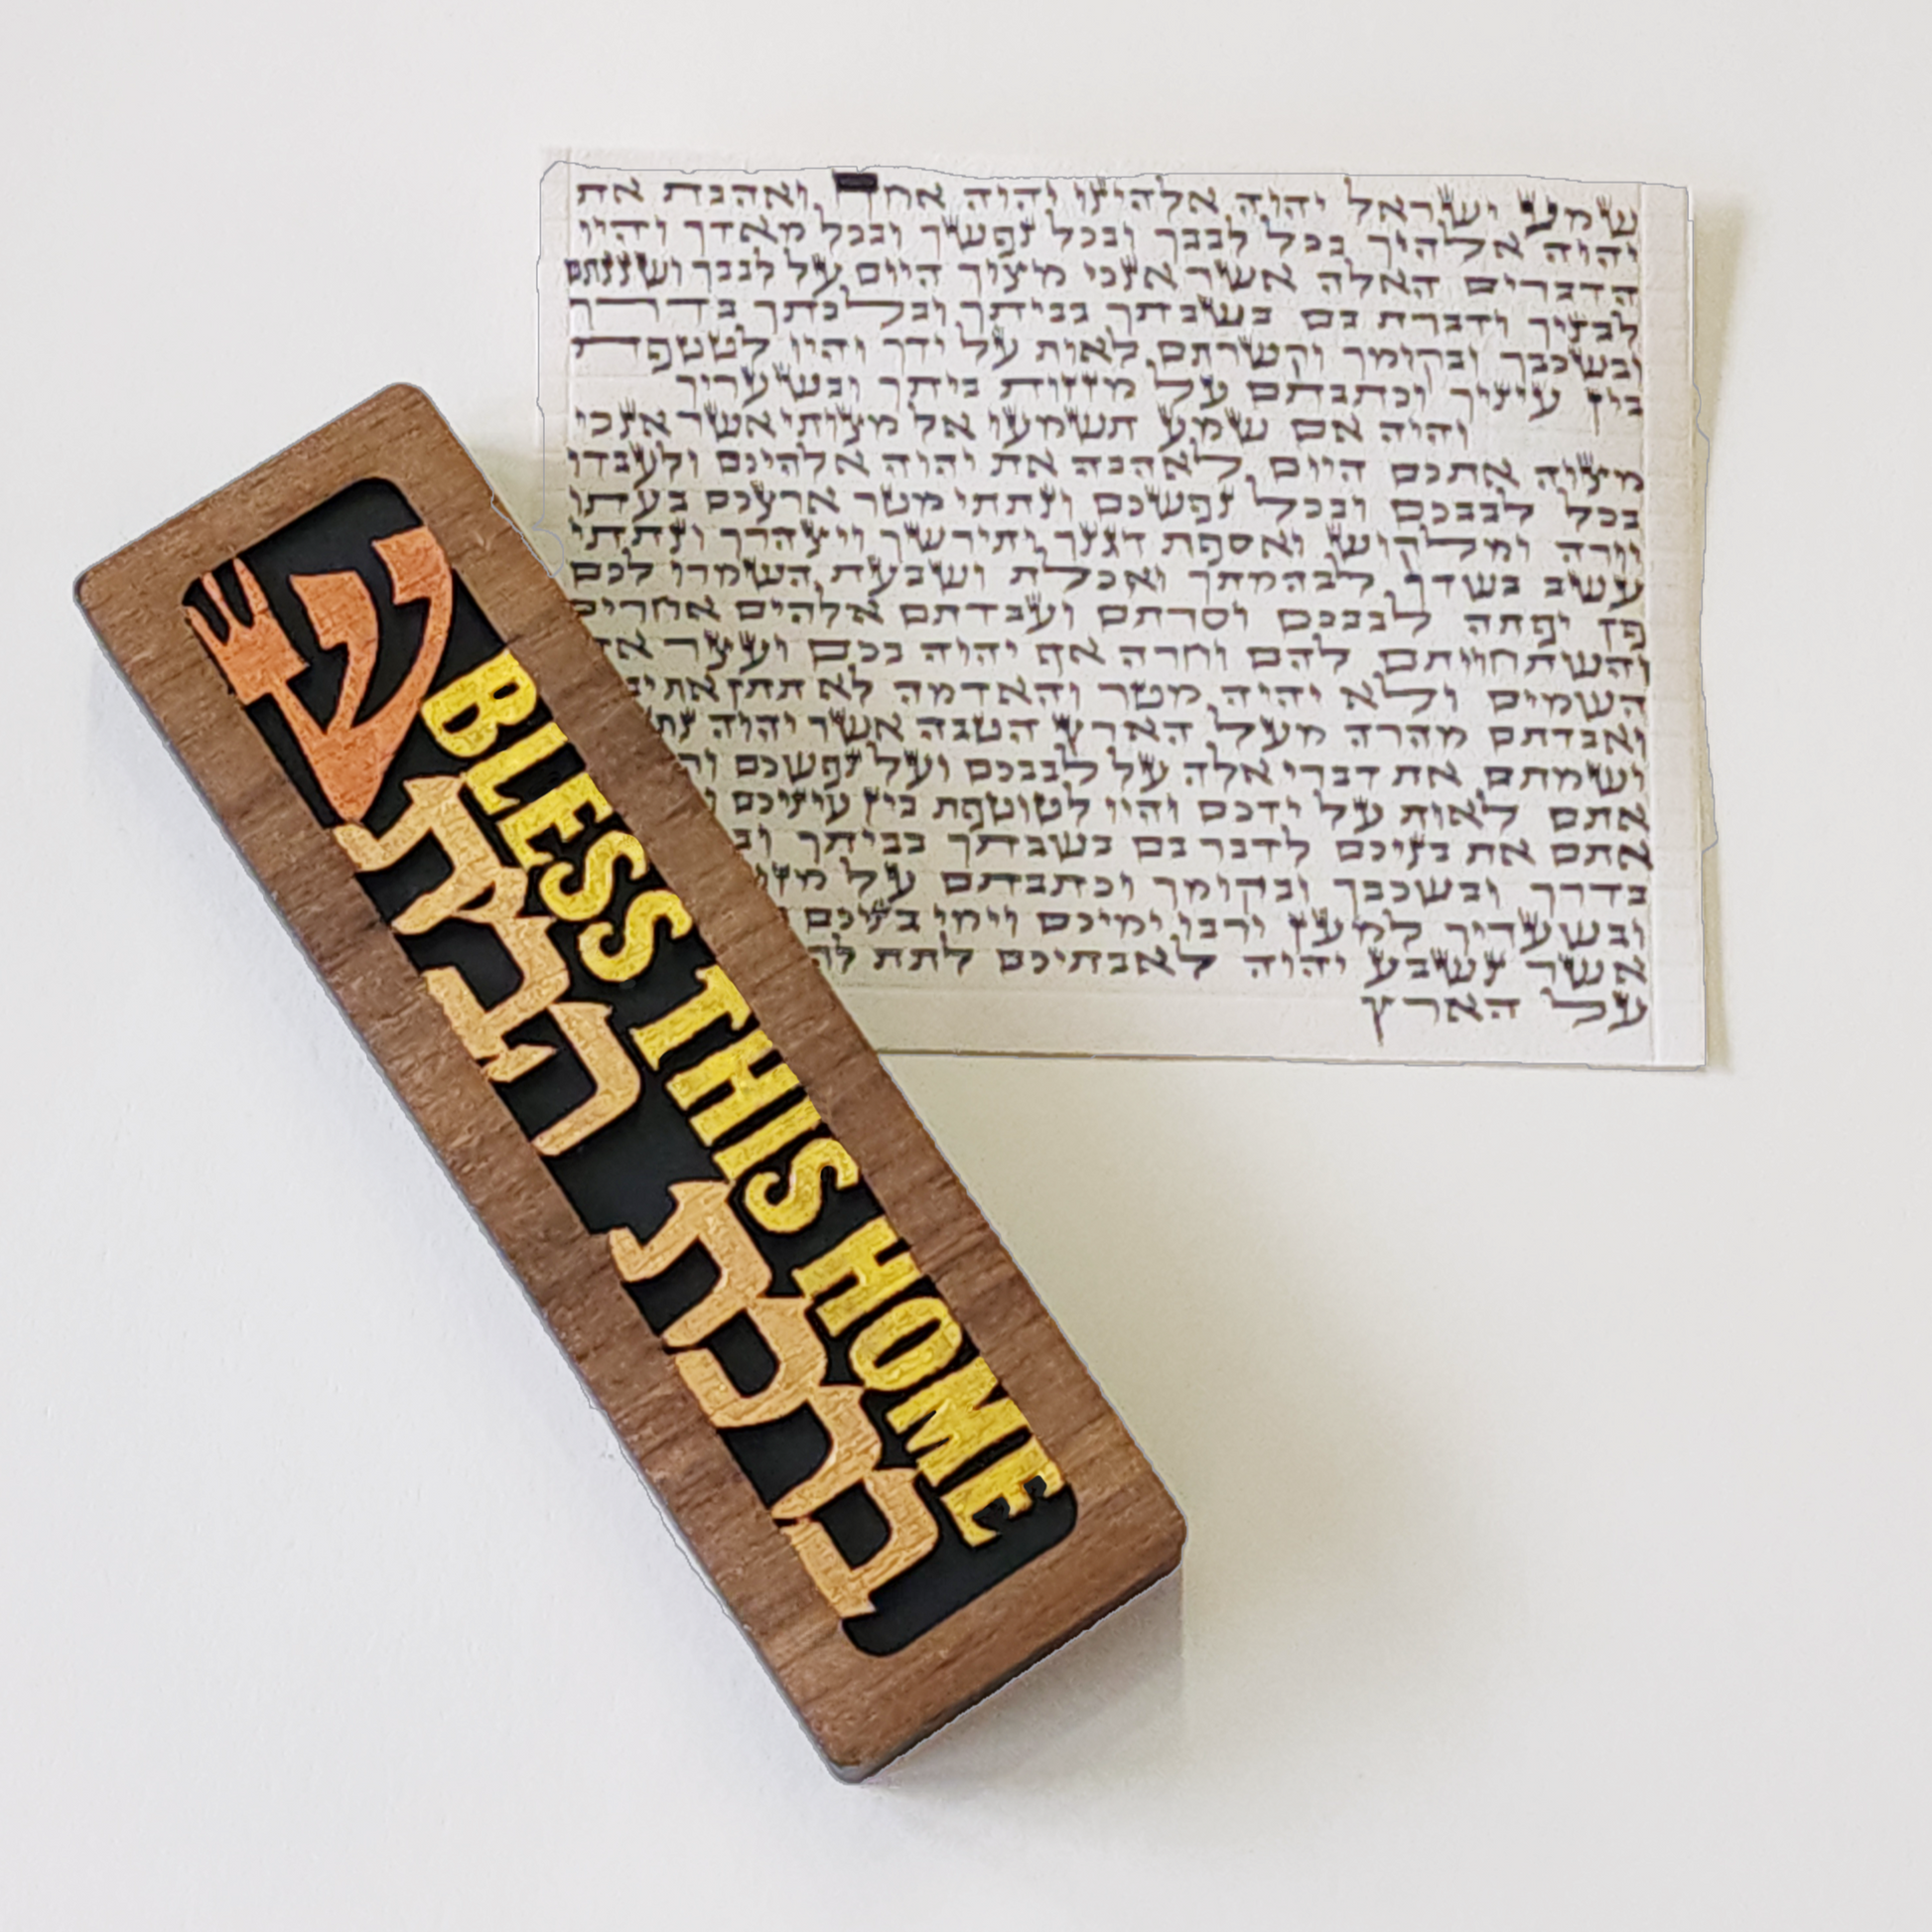 שמע ישראל יהוה אלהינו יהוה אחד ואהבת את
יהוה אלהיך בכל לבבך ובכל נפשך ובכל מאדך והיו
הדברים האלה אשר אנכי מצוך היום על לבבך ושננתם
לבניך ודברת בם בשבתך בביתך ובלכתך בדרך
ובשכבך ובקומך וקשרתם לאות על ידך והיו לטטפת
בין עיניך וכתבתם על מזזות ביתך ובשעריך
והיה אם שמע תשמעו אל מצותי אשר אנכי
מצוה אתכם היום לאהבה את יהוה אלהיכם ולעבדו
בכל לבבכם ובכל נפשכם ונתתי מטר ארצכם בעתו
יורה ומלקוש ואספת דגנך ותירשך ויצהרך ונתתי
עשב בשדך לבהמתך ואכלת ושבעת השמרו לכם
פן יפתה לבבכם וסרתם ועבדתם אלהים אחרים
והשתחויתם להם וחרה אף יהוה בכם ועצר
השמים ולא יהיה מטר והאדמה לא תתן את
ואבדתם מהרה מעל הארץ הטבה אשר יהוה
ושמתם את דברי אלה על לבבכם ועל נפשכם
אתם לאות על ידכם והיו לטוטפת בין עיניכם
אתם את בניכם לדבר בם בשבתך בביתך
בדרך ובשכבך ובקומך וכתבתם על
ובשעריך למען ירבו ימיכם וימי בניכם
אשר נשבע יהוה לאבתיכם לתת
על הארץ
ש
BLESS THIS HOME
ברכת הבית